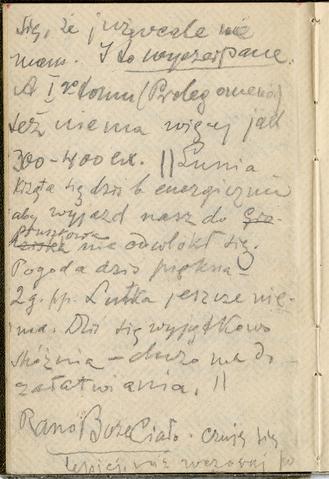 się, że już wcale nie
mam. I to wyczerpane.
A I<sup>go</sup> tomu (Prolegomenów)
też niema więcej jak
300-400 ex. || Lunia
krząta się dziś b. energicznie
aby wyjazd nasz do
nie odwlókł się.
Pogoda dziś piękna -
2 g. pp. Lutka jeszcze nie-
ma. Dziś się wyjątkowo
spóźnia - dużo ma do
załatwiania. ||
Rano Boże Ciało. Czuję się
lepiej niż wczoraj